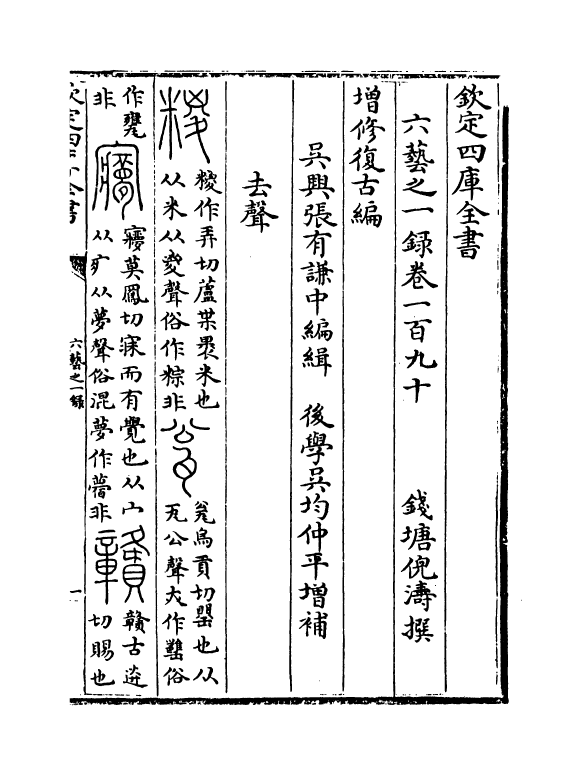 欽定四庫全書
六藝之一録卷一百九十
錢塘倪濤撰
增修復古編
吳興張有謙中編緝　後學吳均仲平增補
去聲
糉作弄切蘆葉褁米也
从米从㚇聲俗作粽非
瓮烏貢切罌也从
瓦公聲大作罋俗
作甕
非
㝱莫鳳切寐而有覺也从宀
从疒从夢聲俗混夢作瞢非
贛古送
切賜也
欽定四庫全書
六藝之一録
一